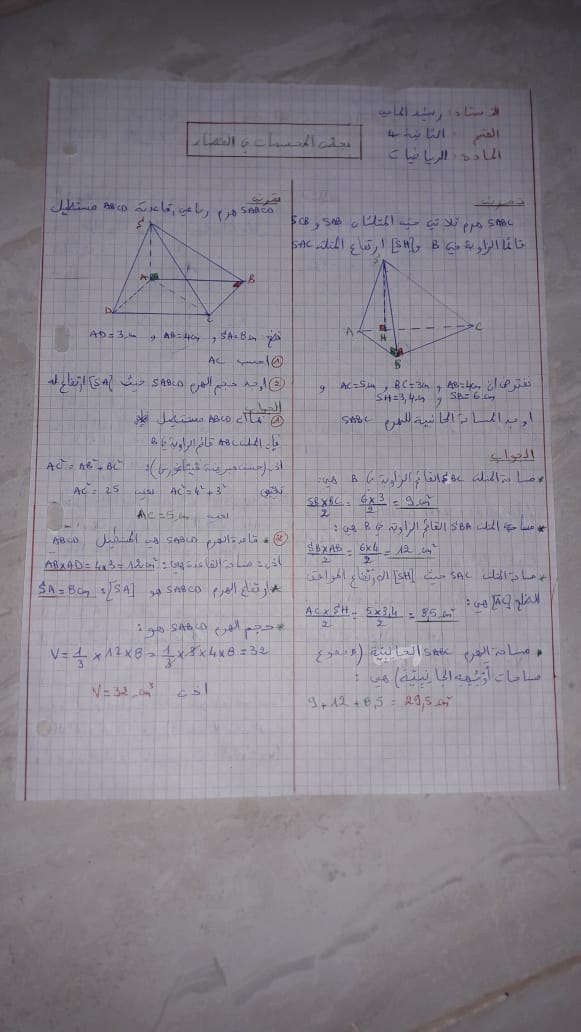 الأستاذ: رشيد الماحي
القسم: الثانية 4
المادة: الرياضيات
بعض المجسمات في الفضاء
تمرين
SABC هرم ثلاثي حيث المثلثان SAB و SCB
قائما الزاوية في B و [SH] ارتفاع المثلث SAC
S
A
H
C
B
نفترض أن AB=4cm و BC=3cm و AC=5cm و
SB=6cm و SH=3,4cm
أوجد المساحة الجانبية للهرم SABC
الجواب
* مساحة المثلث SBC القائم الزاوية في B هي:
SB×BC/2 = 6×3/2 = 9 cm²
* مساحة المثلث SBA القائم الزاوية في B هي:
SB×AB/2 = 6×4/2 = 12 cm²
* مساحة المثلث SAC حيث [SH] الارتفاع الموافق
للضلع [AC] هي:
AC×SH/2 = 5×3,4/2 = 8,5 cm²
* مساحة الهرم SABC الجانبية (مجموع
مساحات أوجهه الجانبية) هي:
9+12+8,5 = 29,5 cm²
تمرين
SABCD هرم رباعي، قاعدته ABCD مستطيل
S
A
B
D
C
نضع SA=8cm و AB=4cm و AD=3cm
1 احسب AC
2 أوجد حجم الهرم SABCD حيث [SA] ارتفاع له
الجواب
1 ABCD مستطيل
فإن المثلث ABC قائم الزاوية في B
إذن (حسب مبرهنة فيتاغورس): AC² = AB² + BC²
تعني AC² = 4² + 3² تعني AC² = 25
تعني AC = 5cm
2 * قاعدة الهرم SABCD هي المستطيل ABCD
إذن: مساحة القاعدة هي: AB×AD = 4×3 = 12cm²
* ارتفاع الهرم SABCD هو [SA]: SA = 8cm
* حجم الهرم SABCD هو:
V = 1/3 × 12 × 8 = 1/3 × 3 × 4 × 8 = 32
إذن V = 32 cm³